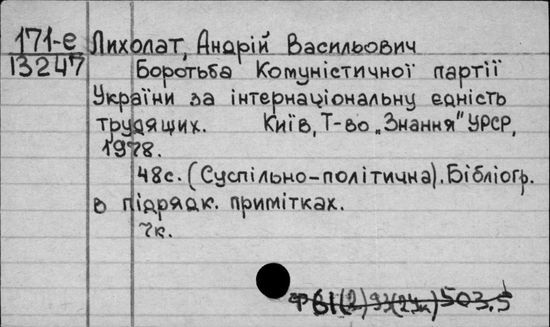 171-е Лихолат, Андрій Васильович
13247 Боротьба Комуністичної партії
України за інтернаціональну єдність
трудящих. Київ, Т-во „Знання" УРСР,
1978.
48с. (Суспільно-політична). Бібліогр.
в підрядк. примітках.
7к.
503.5